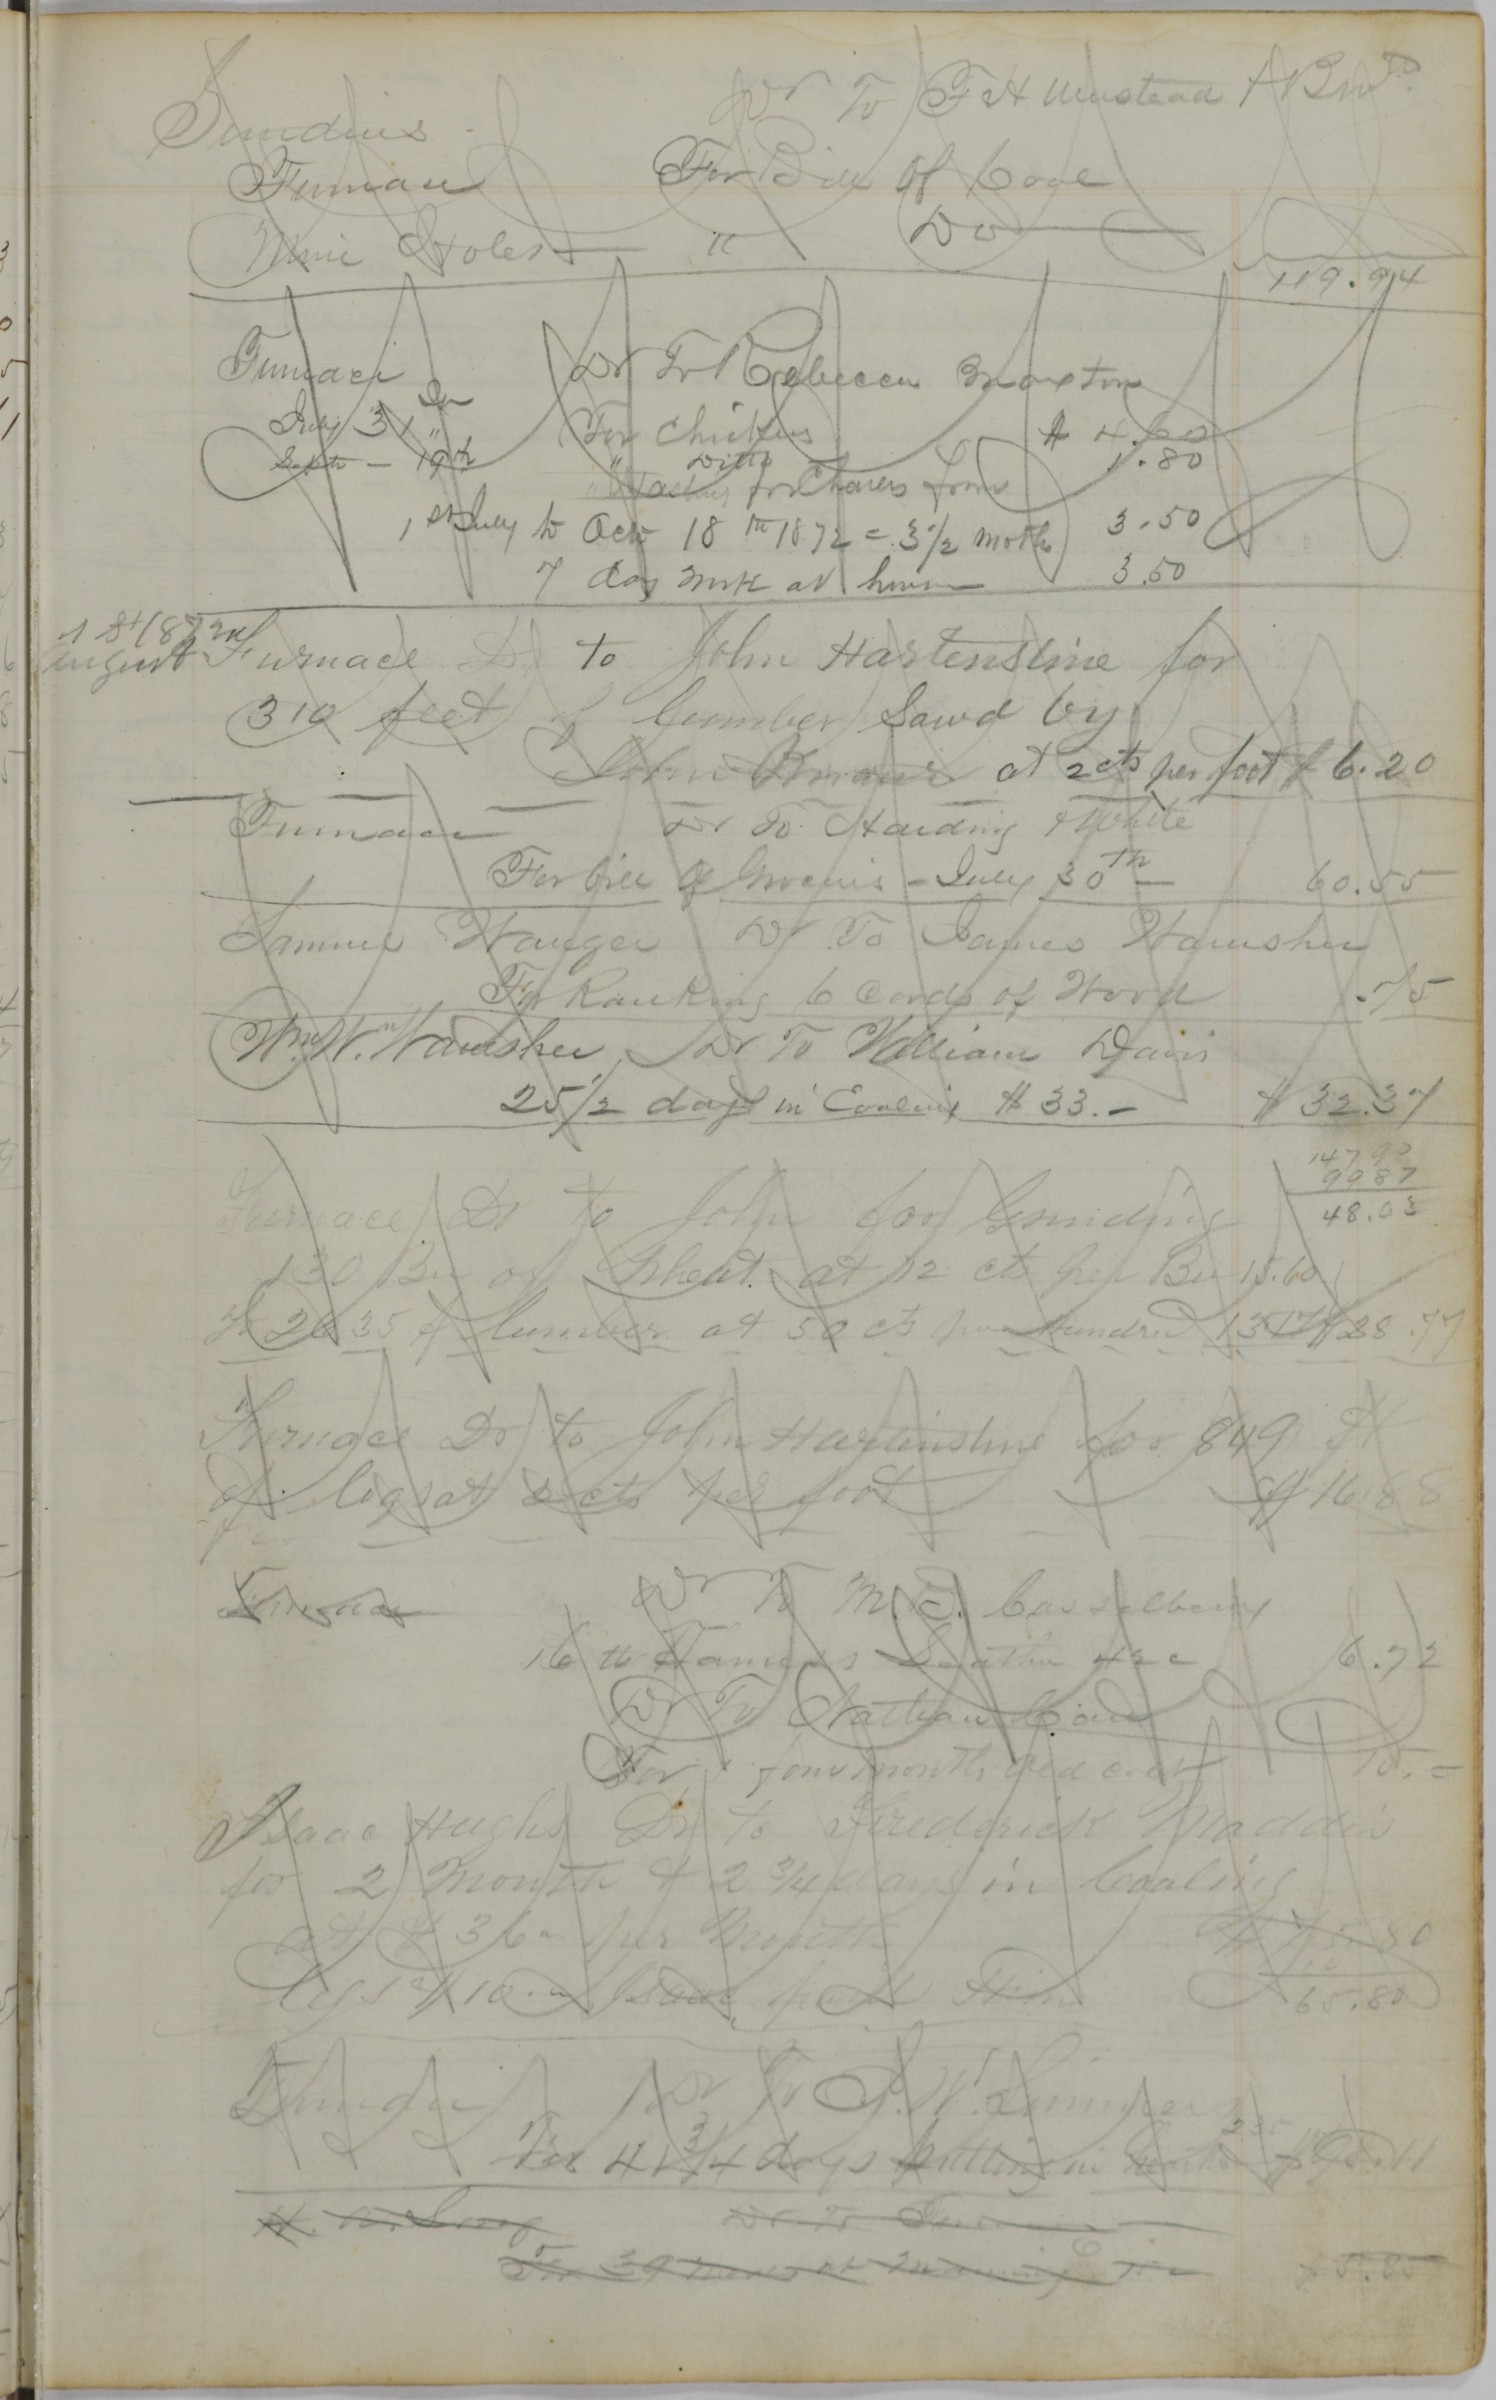 Sundries Dr To F H Umstead & Bro
Furnace For Bill of Coal
Mine Holes " Do
119.94
Furnace Dr To Rebecca
July 31 " For Chickens $ 4.60
Septr - 19th " Ditto 1.80
" for Charles from
1st July to Oct 18th 1872 = 3 1/2 Moths 3.50
7 days work at house 3.50
1st 1872
august Furnace Dr to John Hartenstine for
310 feet of lumber Sawd by
John at 2 cts per foot $ 6.20
Furnace Dr To Harding & White
For bill of Groceries - July 30th 60.55
Samuel Wanger Dr To James Hamsher
For Ranking 6 Cords of Wood .75
Wm W. Hamsher Dr To William Davis
25 1/2 days in Coaling $ 33.- $ 32.37
147 90
99 87
48.03
Furnace Dr to John for Grinding
130 Bu of Wheat at 12 cts per Bu 15.60
& 2635 of lumber at 50 cts per Hundred 13 17 $ 28.77
Furnace Dr to John Hartenstine for 849 ft
of logs at 2 cts per foot $ 16.88
Furnace Dr To M. C. Casselberry
16 lb Harness Leather 42c 6.72
Dr To Nathan
For four months old 10.=
Isaac Hughs Dr to Frederick Maddis
for 2 Month & 2 3/4 days in Coaling
at $ 36 - per Month $ 75.80
10
by $ 10.- Isaac paid Him 65.80
Dr To S. W.
For 41 3/4 days Cutting in
Dr To Furnace
For 39 5.85